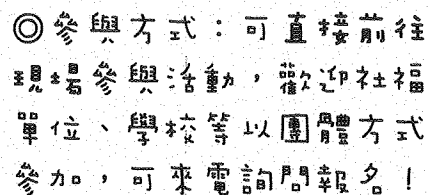 ◎參與方式：可直接前往
現場參與活動，歡迎社福
單位、學校等以團體方式
參加，可來電詢問報名！